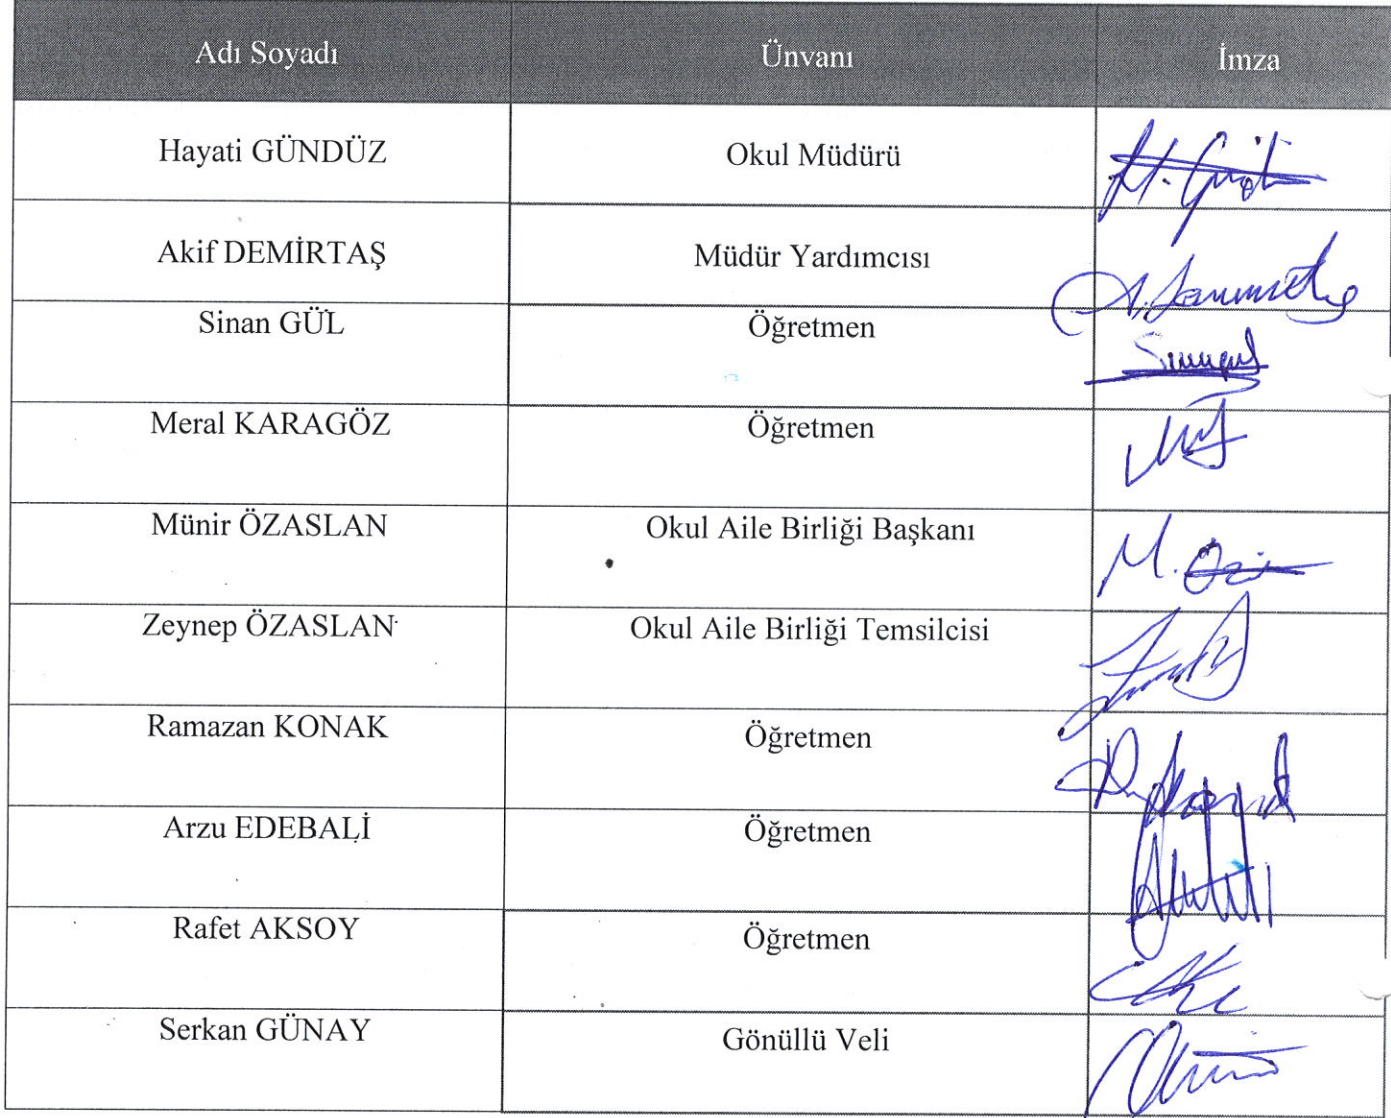 Adı Soyadı Ünvanı İmza
Hayati GÜNDÜZ Okul Müdürü
Akif DEMİRTAŞ Müdür Yardımcısı
Sinan GÜL Öğretmen
Meral KARAGÖZ Öğretmen
Münir ÖZASLAN Okul Aile Birliği Başkanı
Zeynep ÖZASLAN Okul Aile Birliği Temsilcisi
Ramazan KONAK Öğretmen
Arzu EDEBALİ Öğretmen
Rafet AKSOY Öğretmen
Serkan GÜNAY Gönüllü Veli